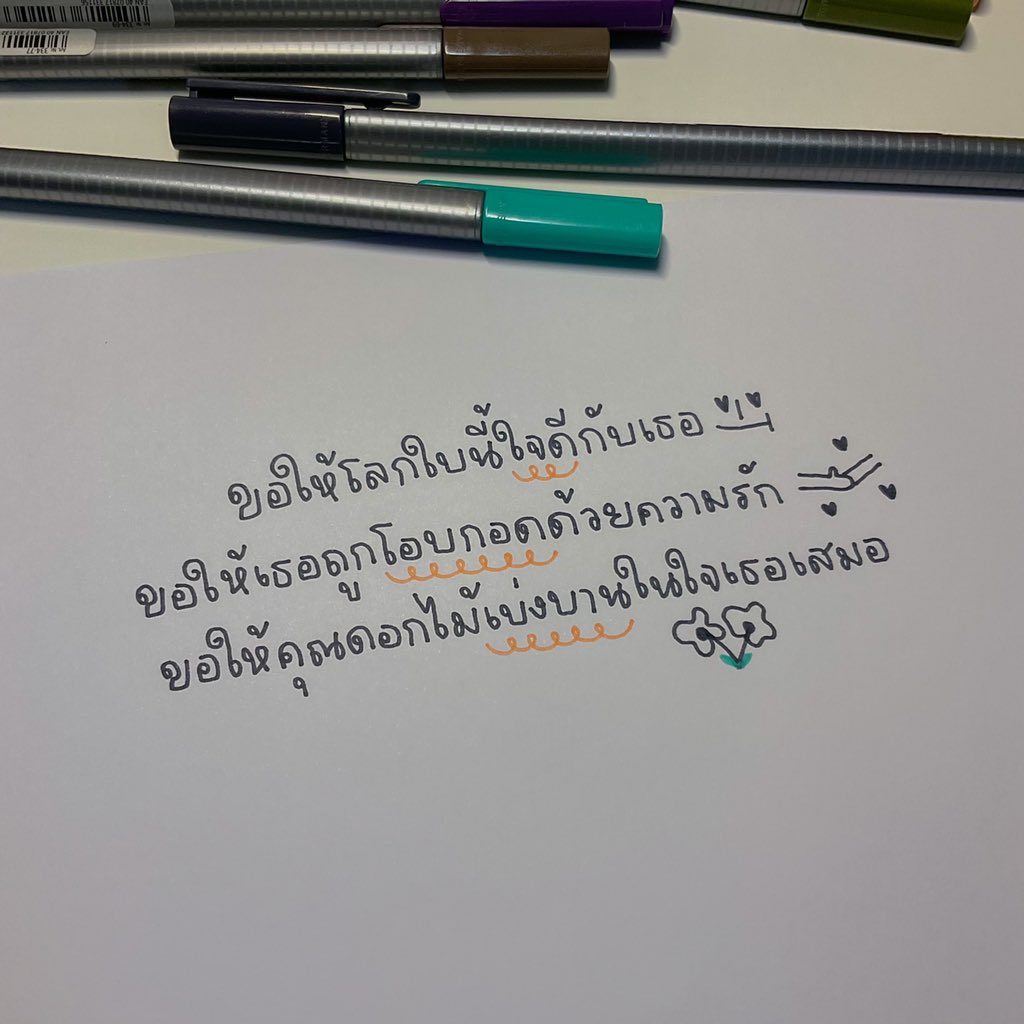 EAN 40 07817 331156
EAN 40 07817 33132
Art. Nr. 334-77
ขอให้โลกใบนี้ใจดีกับเธอ
ขอให้เธอถูกโอบกอดด้วยความรัก
ขอให้คุณดอกไม้เบ่งบานในใจเธอเสมอ